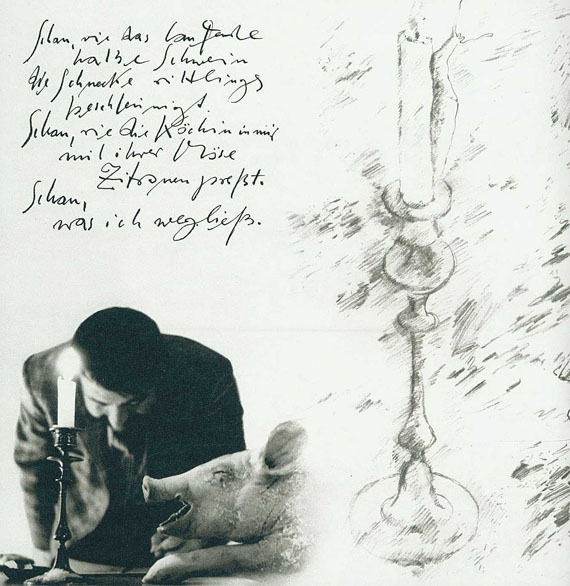 Schau, wie das laufende
halbe Schwein
die Schnecke rittlings
beschleunigt.
Schau, wie die Köchin in mir
mit ihrer Möse
Zitronen preßt.
Schau,
was ich wegließ.